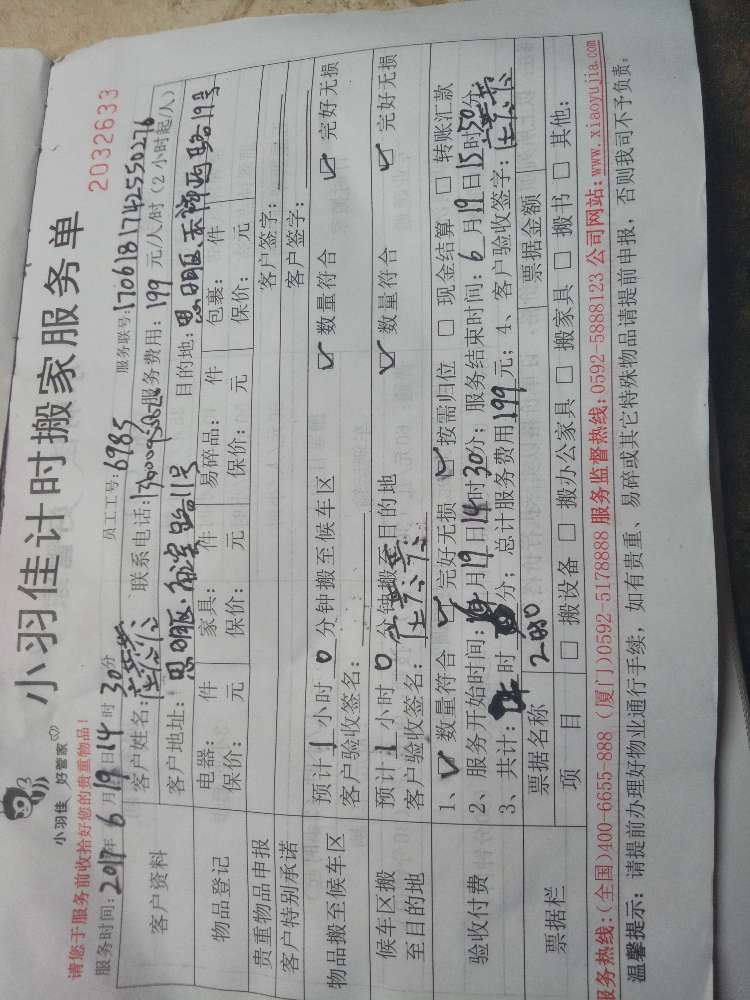 小羽佳 好管家
小羽佳计时搬家服务单
2032633
请您于服务前收拾好您的贵重物品!
服务时间:2017年6月19日14时30分 员工工号:6985 服务联号:1706181742550276
客户资料
客户姓名: 联系电话: 服务费用:199元/人/时(2小时起/人)
客户地址:思明区 路11号 目的地:思明区 路19号
物品登记
电器: 件 家具: 件 易碎品: 件 包裹: 件
保价: 元 保价: 元 保价: 元 保价: 元
贵重物品申报 客户签字:
客户特别承诺 客户签字:
物品搬至候车区
预计1小时0分钟搬至候车区 ✓数量符合 ✓完好无损
客户验收签名:
候车区搬至目的地
预计1小时0分钟搬至目的地 ✓数量符合 ✓完好无损
客户验收签名:
验收付费
1、✓数量符合 ✓完好无损 ✓按需归位 □现金结算 □转账汇款
2、服务开始时间: 月19日14时30分;服务结束时间:6月19日15时50分
3、共计: 时 分;总计服务费用199元;4、客户验收签字:
票据栏
票据名称 2080 票据金额
项目 □搬设备 □搬办公家具 □搬家具 □搬书 □其他:
服务热线:(全国)400-6655-888 (厦门)0592-5178888 服务监督热线:0592-5888123 公司网站:www.xiaoyujia.com
温馨提示:请提前办理好物业通行手续,如有贵重、易碎或其它特殊物品请提前申报,否则我司不予负责。